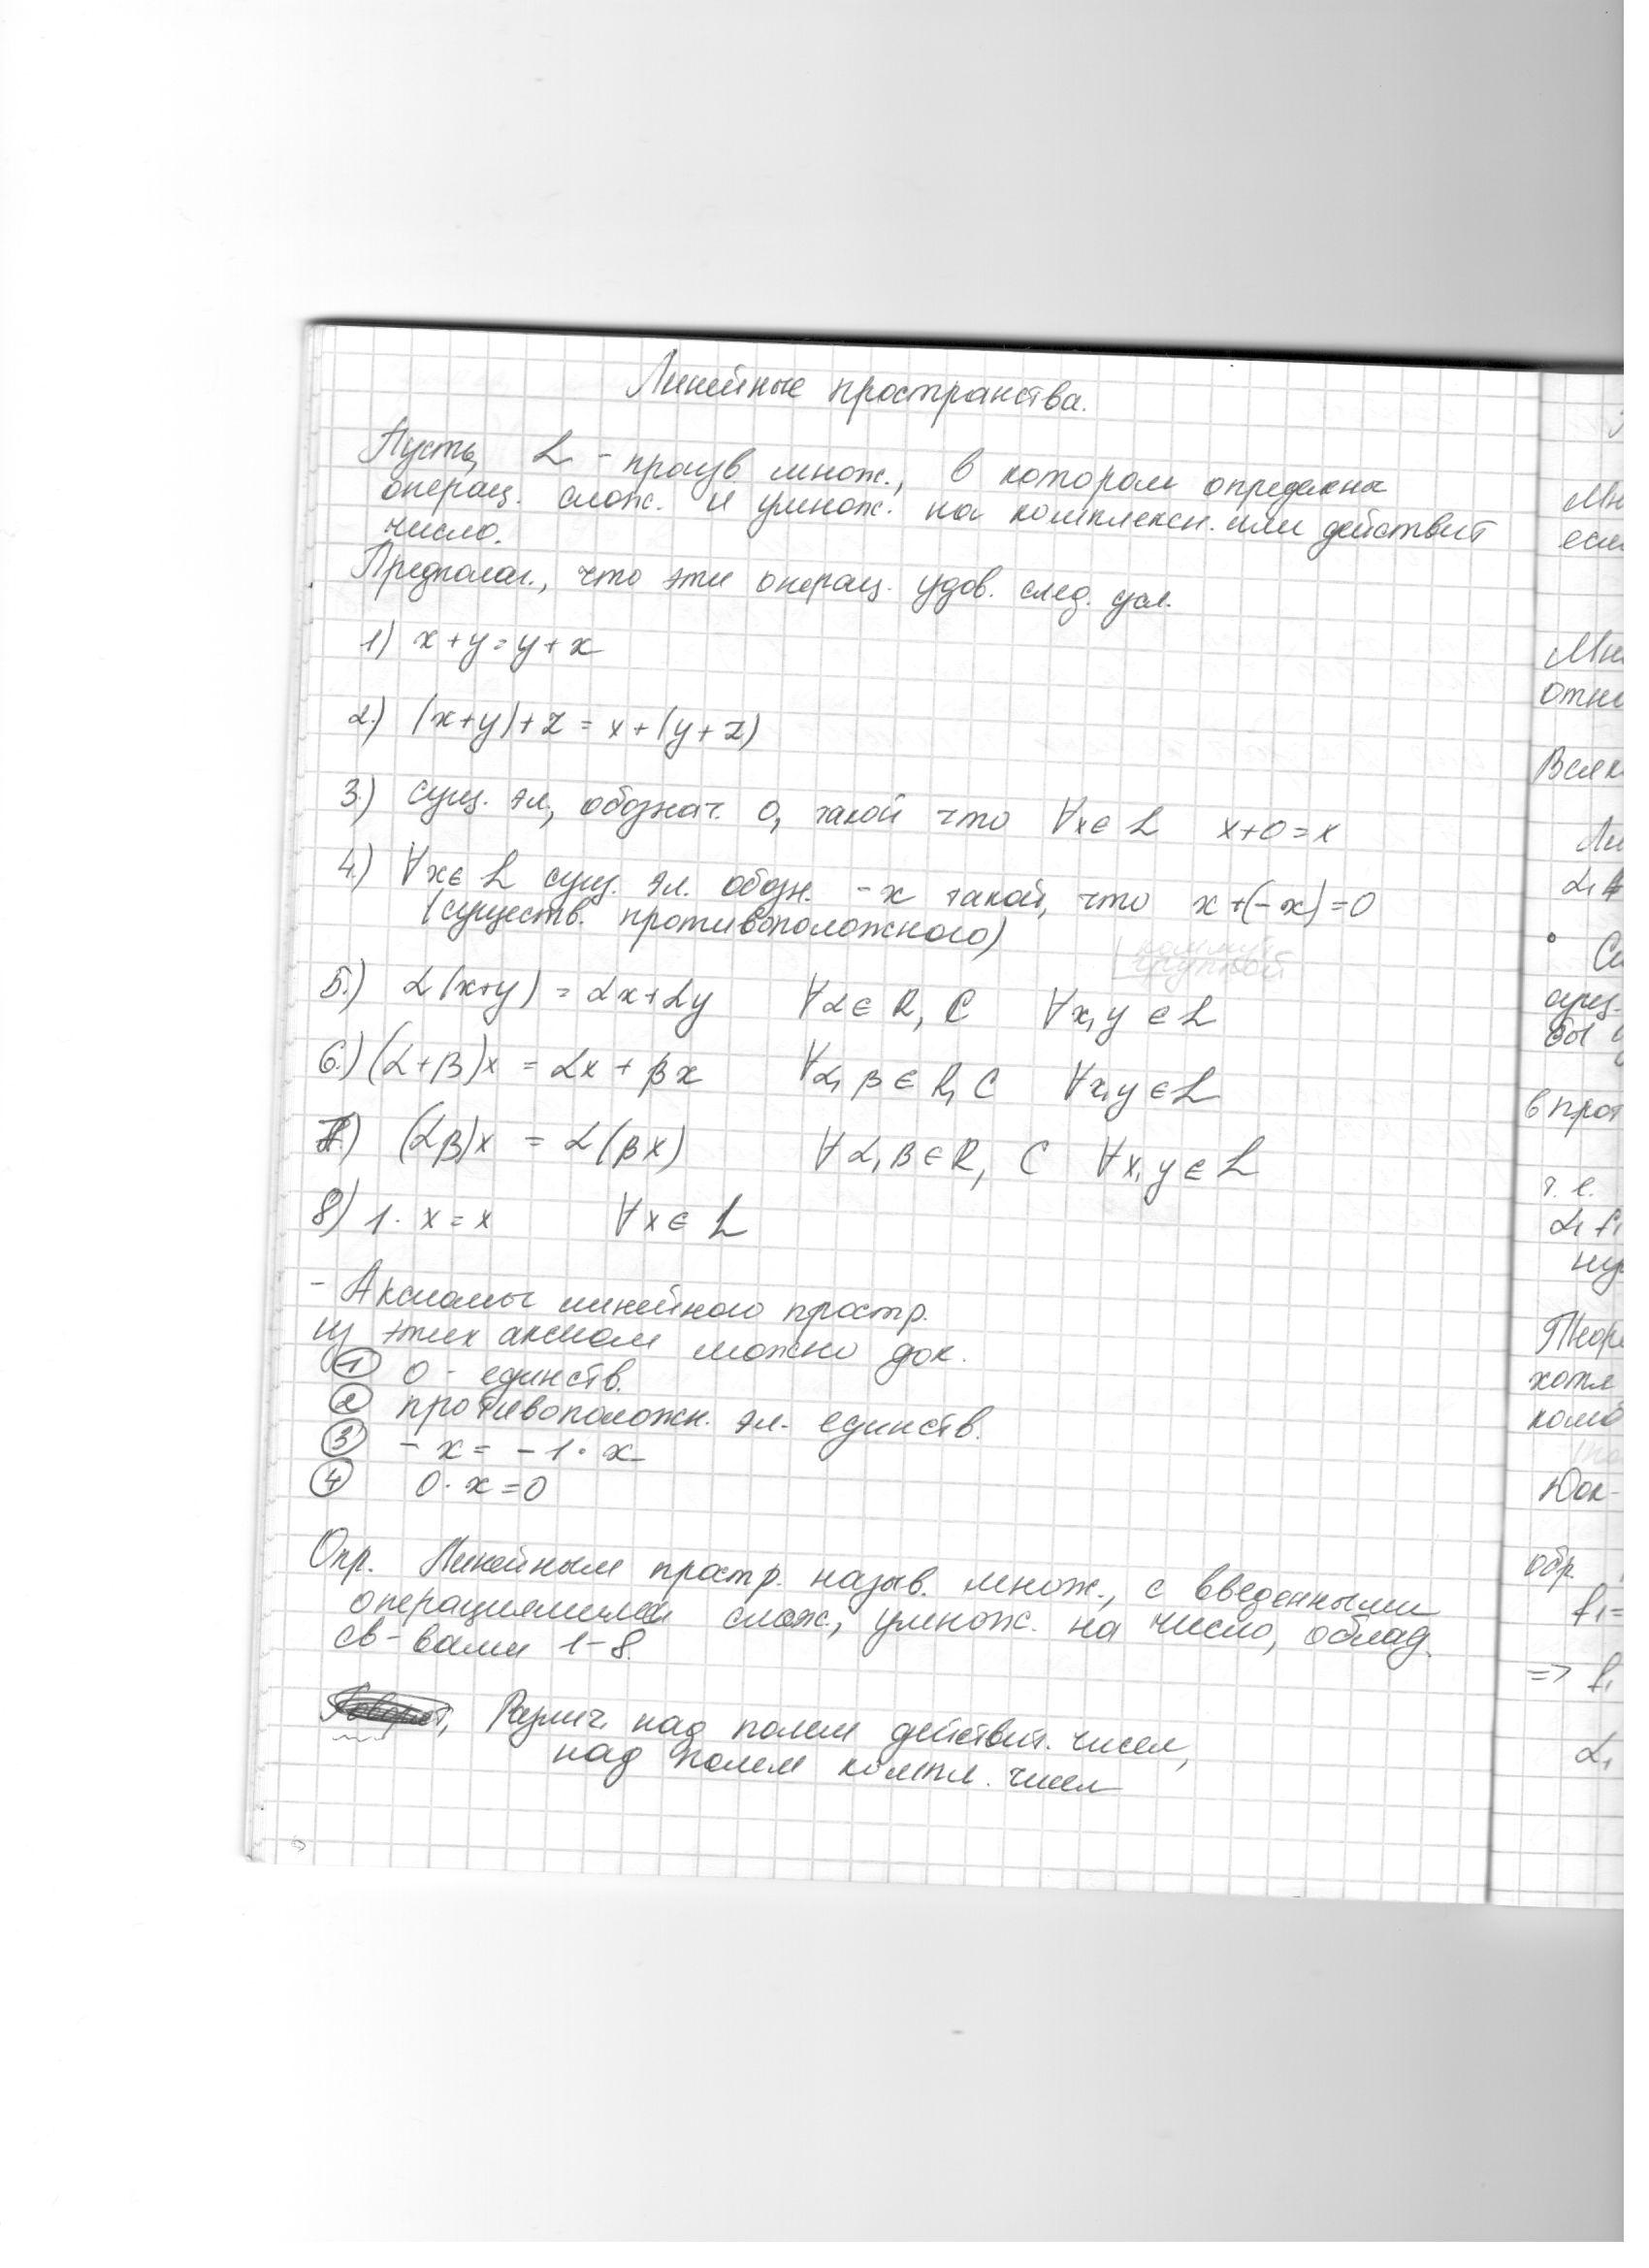 Линейные пространства.
Пусть L - произв множ., в котором определена
операц. слож. и умнож. на комплексн. или действит
число.
Предполаг., что эти операц. удов. след. усл.
1) x+y=y+x
2.) (x+y)+z = x+(y+z)
3.) сущ. эл., обознач. 0, такой что ∀x∈L x+0=x
4.) ∀x∈L сущ. эл. обозн. -x такой, что x+(-x)=0
(существ. противоположного)
группой
5.) α(x+y) = αx+αy ∀α∈R, C ∀x,y∈L
6.) (α+β)x = αx+βx ∀α,β∈R,C ∀x,y∈L
7) (αβ)x = α(βx) ∀α,β∈R, C ∀x,y∈L
8) 1·x=x ∀x∈L
- Аксиомы линейного простр.
из этих аксиом можно док.
① 0 - единств.
② противоположн. эл. единств.
③ -x = -1·x
④ 0·x=0
Опр. Линейным простр. назыв. множ., с введенными
операциями слож., умнож. на число, облад.
св-вами 1-8.
Различ. над полем действит. чисел,
над полем компл. чисел
Мн
если
Мн
отно
Всяк
Ли
α₁
сущ.
бы
в прот
т.е.
α₁f₁
ну
Теоре
хотя
комб
Док-
обр.
f₁=
=> f₁
α₁